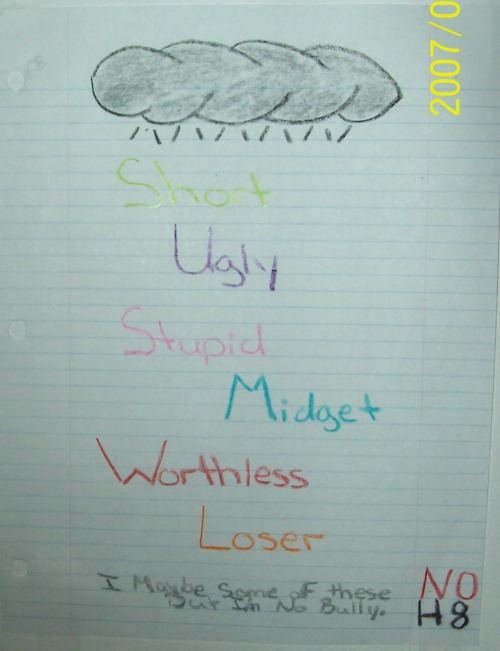 2007/0
Short
Ugly
Stupid
Midget
Worthless
Loser
I Maybe Some of these
but I'm No Bully.
NO
H8